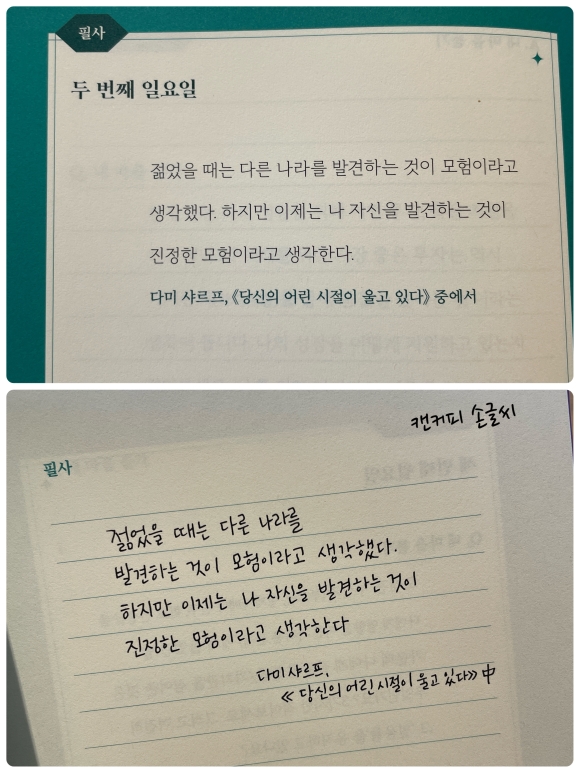 필사
두 번째 일요일
젊었을 때는 다른 나라를 발견하는 것이 모험이라고
생각했다. 하지만 이제는 나 자신을 발견하는 것이
진정한 모험이라고 생각한다.
다미 샤르프, 《당신의 어린 시절이 울고 있다》 중에서
캔커피 손글씨
필사
젊었을 때는 다른 나라를
발견하는 것이 모험이라고 생각했다.
하지만 이제는 나 자신을 발견하는 것이
진정한 모험이라고 생각한다
다미 샤르프,
《당신의 어린 시절이 울고 있다》 中